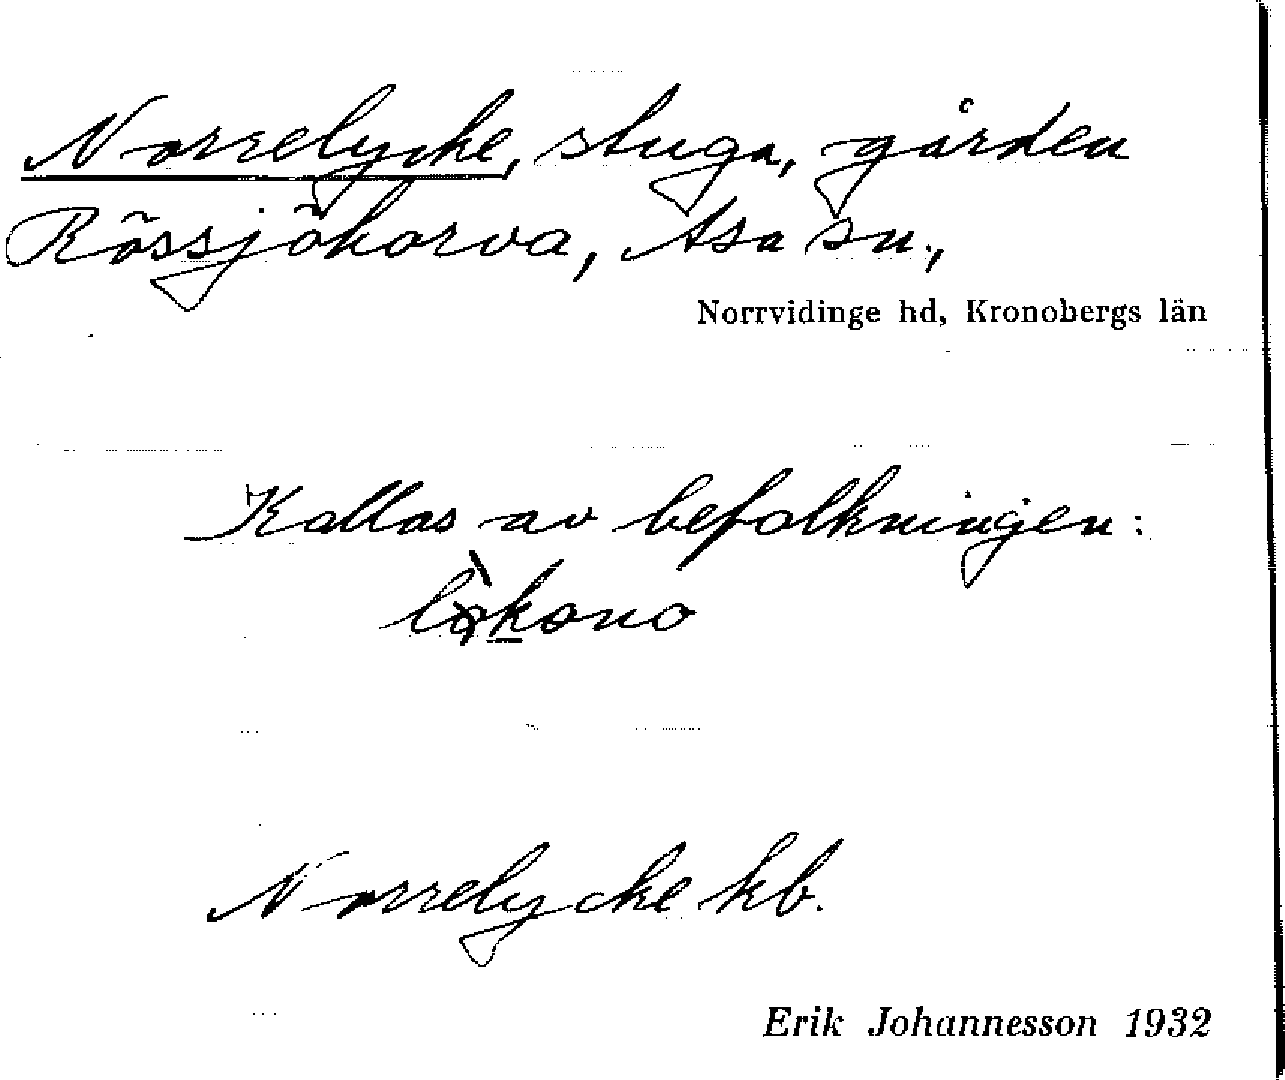 Norrelycke, stuga, gården
Rössjöhorva, Asa sn.,
Norrvidinge hd, Kronobergs län
Kallas av befolkningen:
Norrelycke kb.
Erik Johannesson 1932